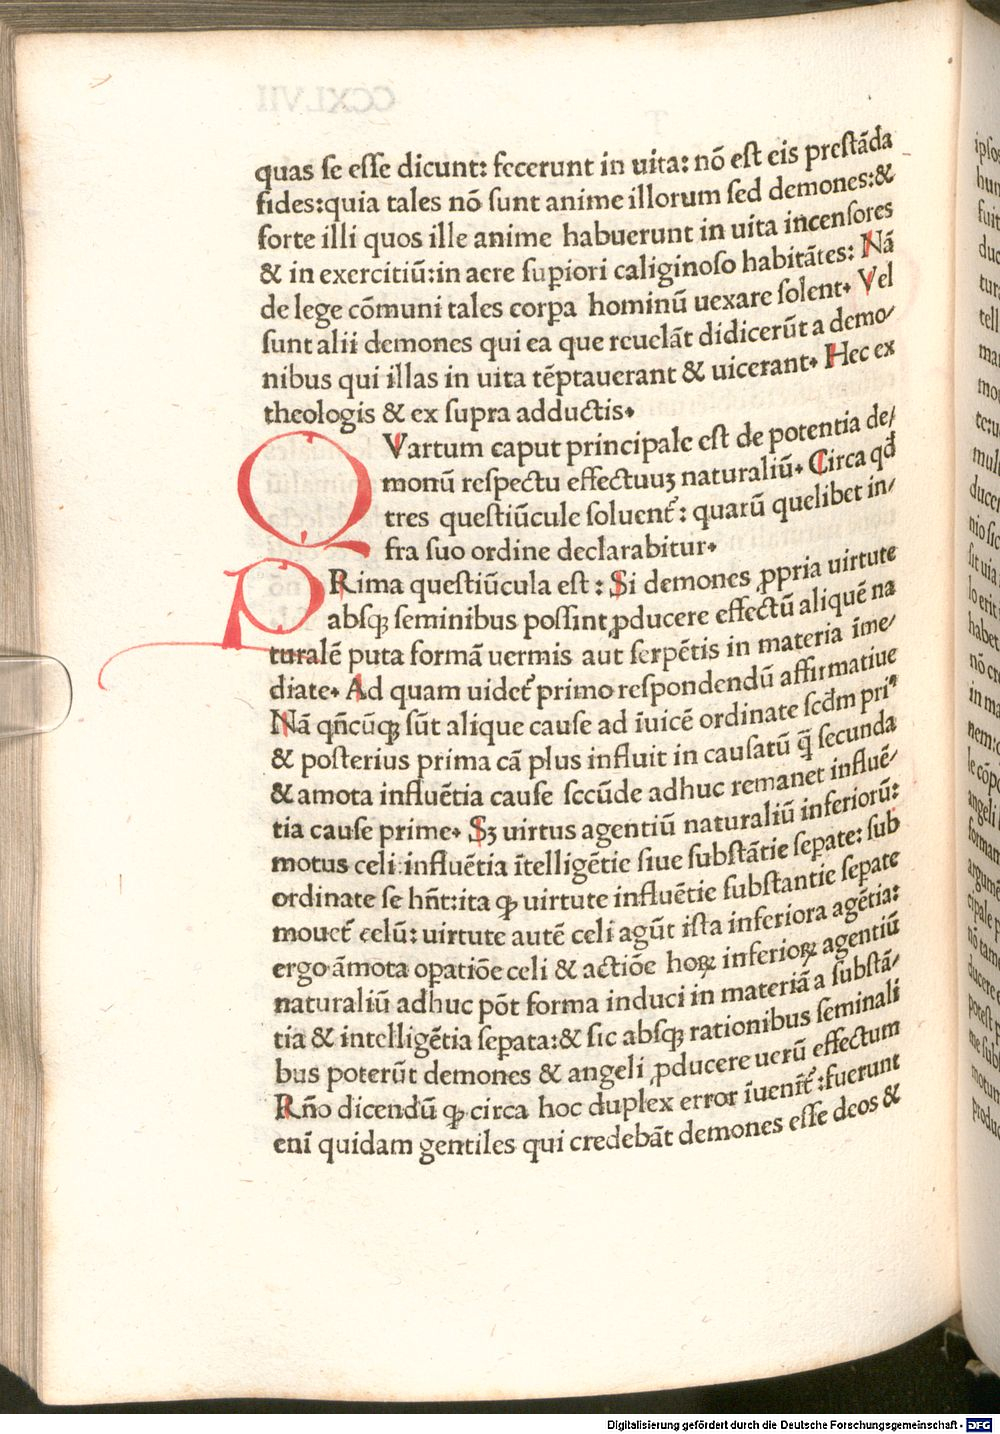 quas se esse dicunt: fecerunt in uita: nō est eis prestāda
fides: quia tales nō sunt anime illorum sed demones: &
forte illi quos ille anime habuerunt in uita incensores
& in exercitiū: in aere suꝑiori caliginoso habitātes: Nā
de lege cōmuni tales corꝑa hominū uexare solent. Vel
sunt alii demones qui ea que reuelāt didicerūt a demo/
nibus qui illas in uita tēptauerant & uicerant. Hec ex
theologis & ex supra adductis.
QVartum caput principale est de potentia de/
monū respectu effectuuꝫ naturaliū. Circa qđ
tres questiūcule soluent᷑: quarū quelibet in/
fra suo ordine declarabitur.
PRima questiūcula est: Si demones ꝓpria uirtute
absqꝫ seminibus possint ꝓducere effectū aliquē na
turalē puta formā uermis aut serpētis in materia īme/
diate. Ad quam uidet᷑ primo respondendū affirmatiue
Nā qn̄cūqꝫ sūt alique cause ad īuicē ordinate scd̄m pri9
& posterius prima cā plus influit in causatū q̄ secunda
& amota influētia cause secūde adhuc remanet influē/
tia cause prime. Sꝫ uirtus agentiū naturaliū inferiorū:
motus celi: influētia ītelligētie siue substātie seꝑate: sub
ordinate se hn̄t: ita ꝙ uirtute influētie substantie seꝑate
mouet᷑ celū: uirtute autē celi agūt ista inferiora agētia:
ergo āmota oꝑatiōe celi & actiōe hoꝝ inferioꝝ agentiū
naturaliū adhuc pōt forma induci in materiā a substā/
tia & intelligētia seꝑata: & sic absqꝫ rationibus seminali
bus poterūt demones & angeli ꝓducere uerū effectum
Rn̄o dicendū ꝙ circa hoc duplex error īuenīt᷑: fuerunt
enī quidam gentiles qui credebāt demones esse deos &
Digitalisierung gefördert durch die Deutsche Forschungsgemeinschaft - DFG